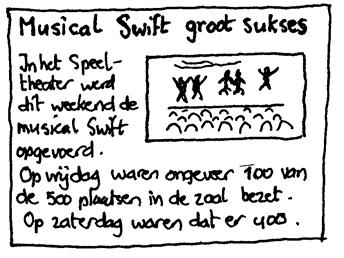 Musical Swift groot sukses
In het Speel-
theater werd
dit weekend de
musical Swift
opgevoerd.
Op vrijdag waren ongeveer 100 van
de 500 plaatsen in de zaal bezet.
Op zaterdag waren dat er 400.